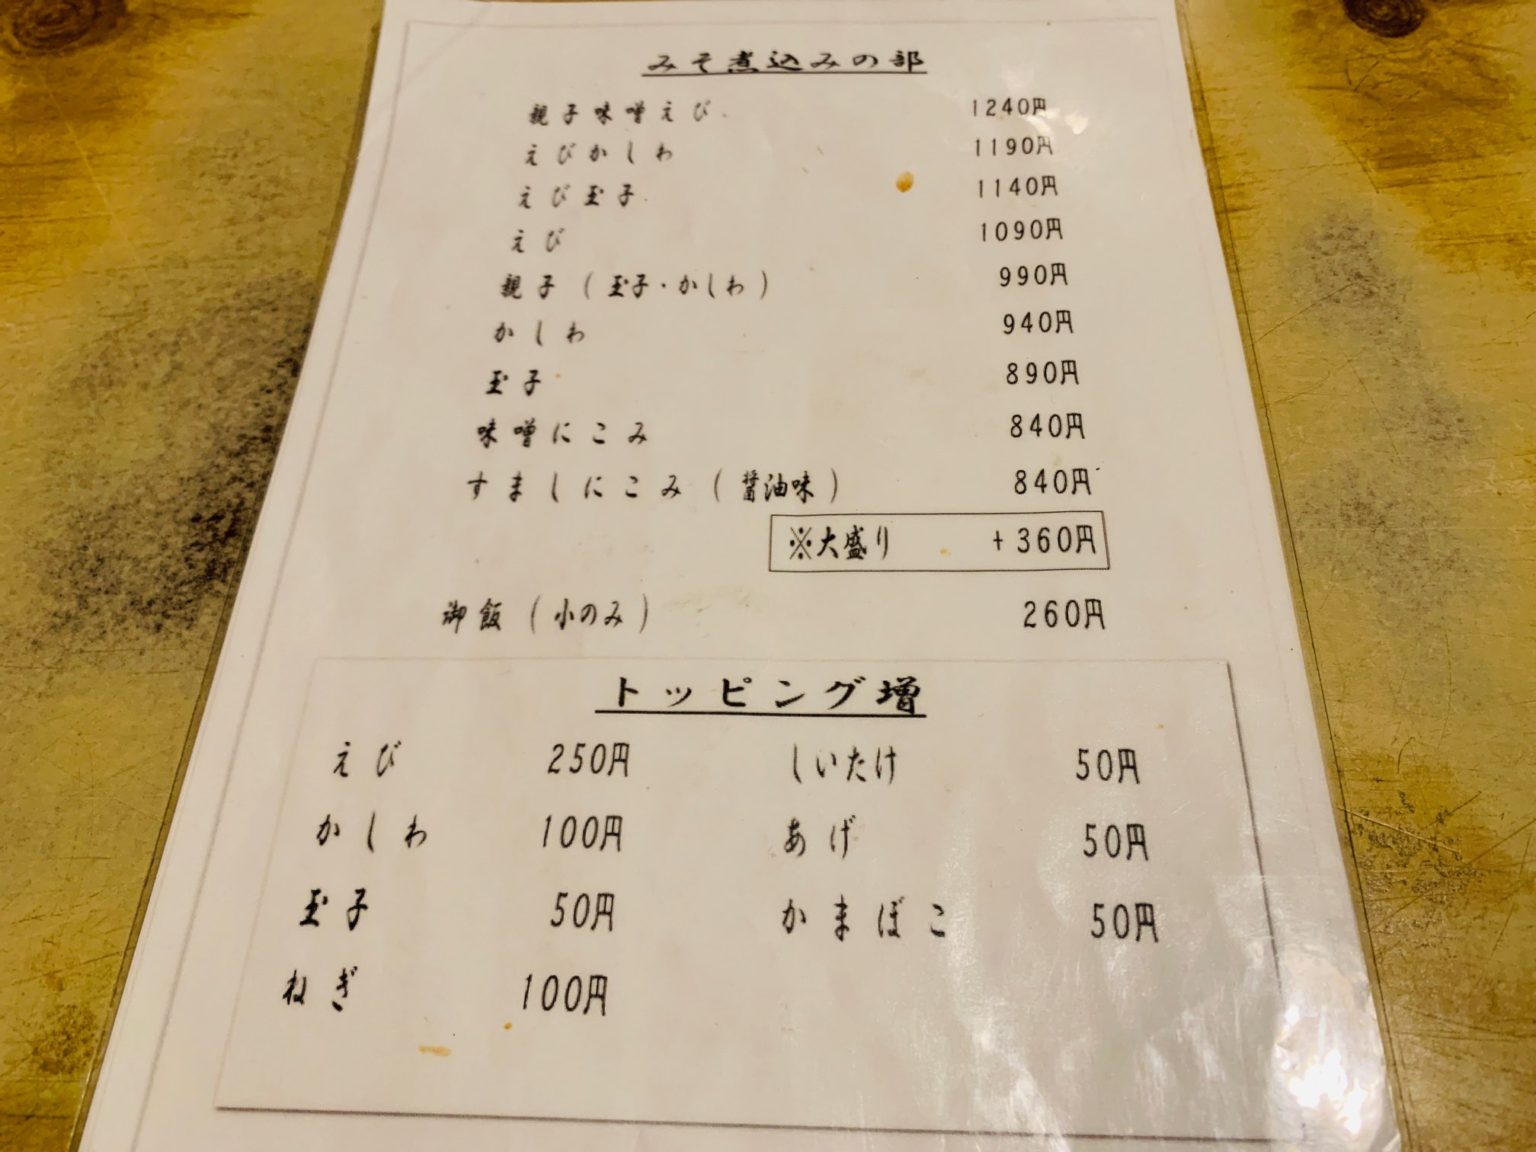 みそ煮込みの部
親子味噌えび 1240円
えびかしわ 1190円
えび玉子 1140円
えび 1090円
親子(玉子・かしわ) 990円
かしわ 940円
玉子 890円
味噌にこみ 840円
すましにこみ(醤油味) 840円
※大盛り +360円
御飯(小のみ) 260円
トッピング増
えび 250円 しいたけ 50円
かしわ 100円 あげ 50円
玉子 50円 かまぼこ 50円
ねぎ 100円